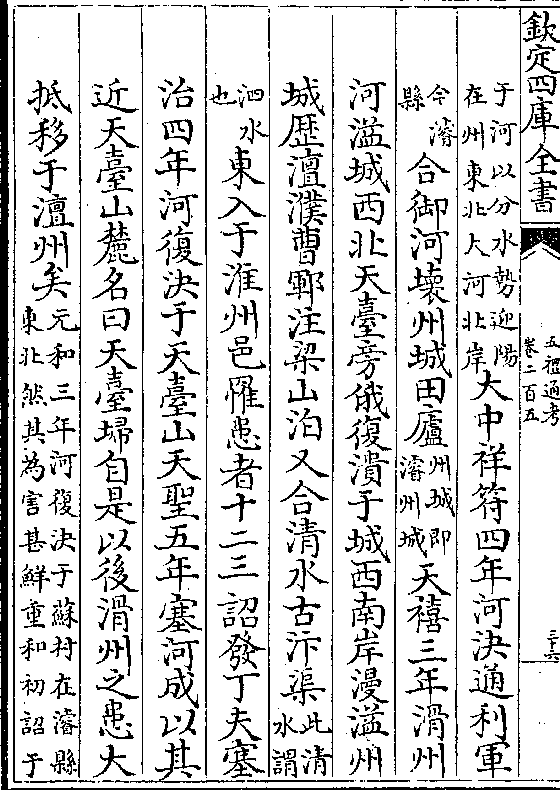 欽定四庫全書
五禮通考
卷二百五
三十六
于河以分水勢迎陽
在州東北大河北岸
大中祥符四年河決通利軍
今濬
縣
合御河壞州城田廬
州城即
濬州城
天禧三年滑州
河溢城西北天臺旁俄復潰于城西南岸漫溢州
城歷澶濮曹鄆注梁山泊又合清水古汴渠
此清
水謂
泗水
也
東入于淮州邑罹患者十二三詔發丁夫塞
治四年河復決于天臺山天聖五年塞河成以其
近天臺山麓名曰天臺埽自是以後滑州之患大
抵移于澶州矣
元和三年河復決于蘇村在濬縣
東北然其為害甚鮮重和初詔于